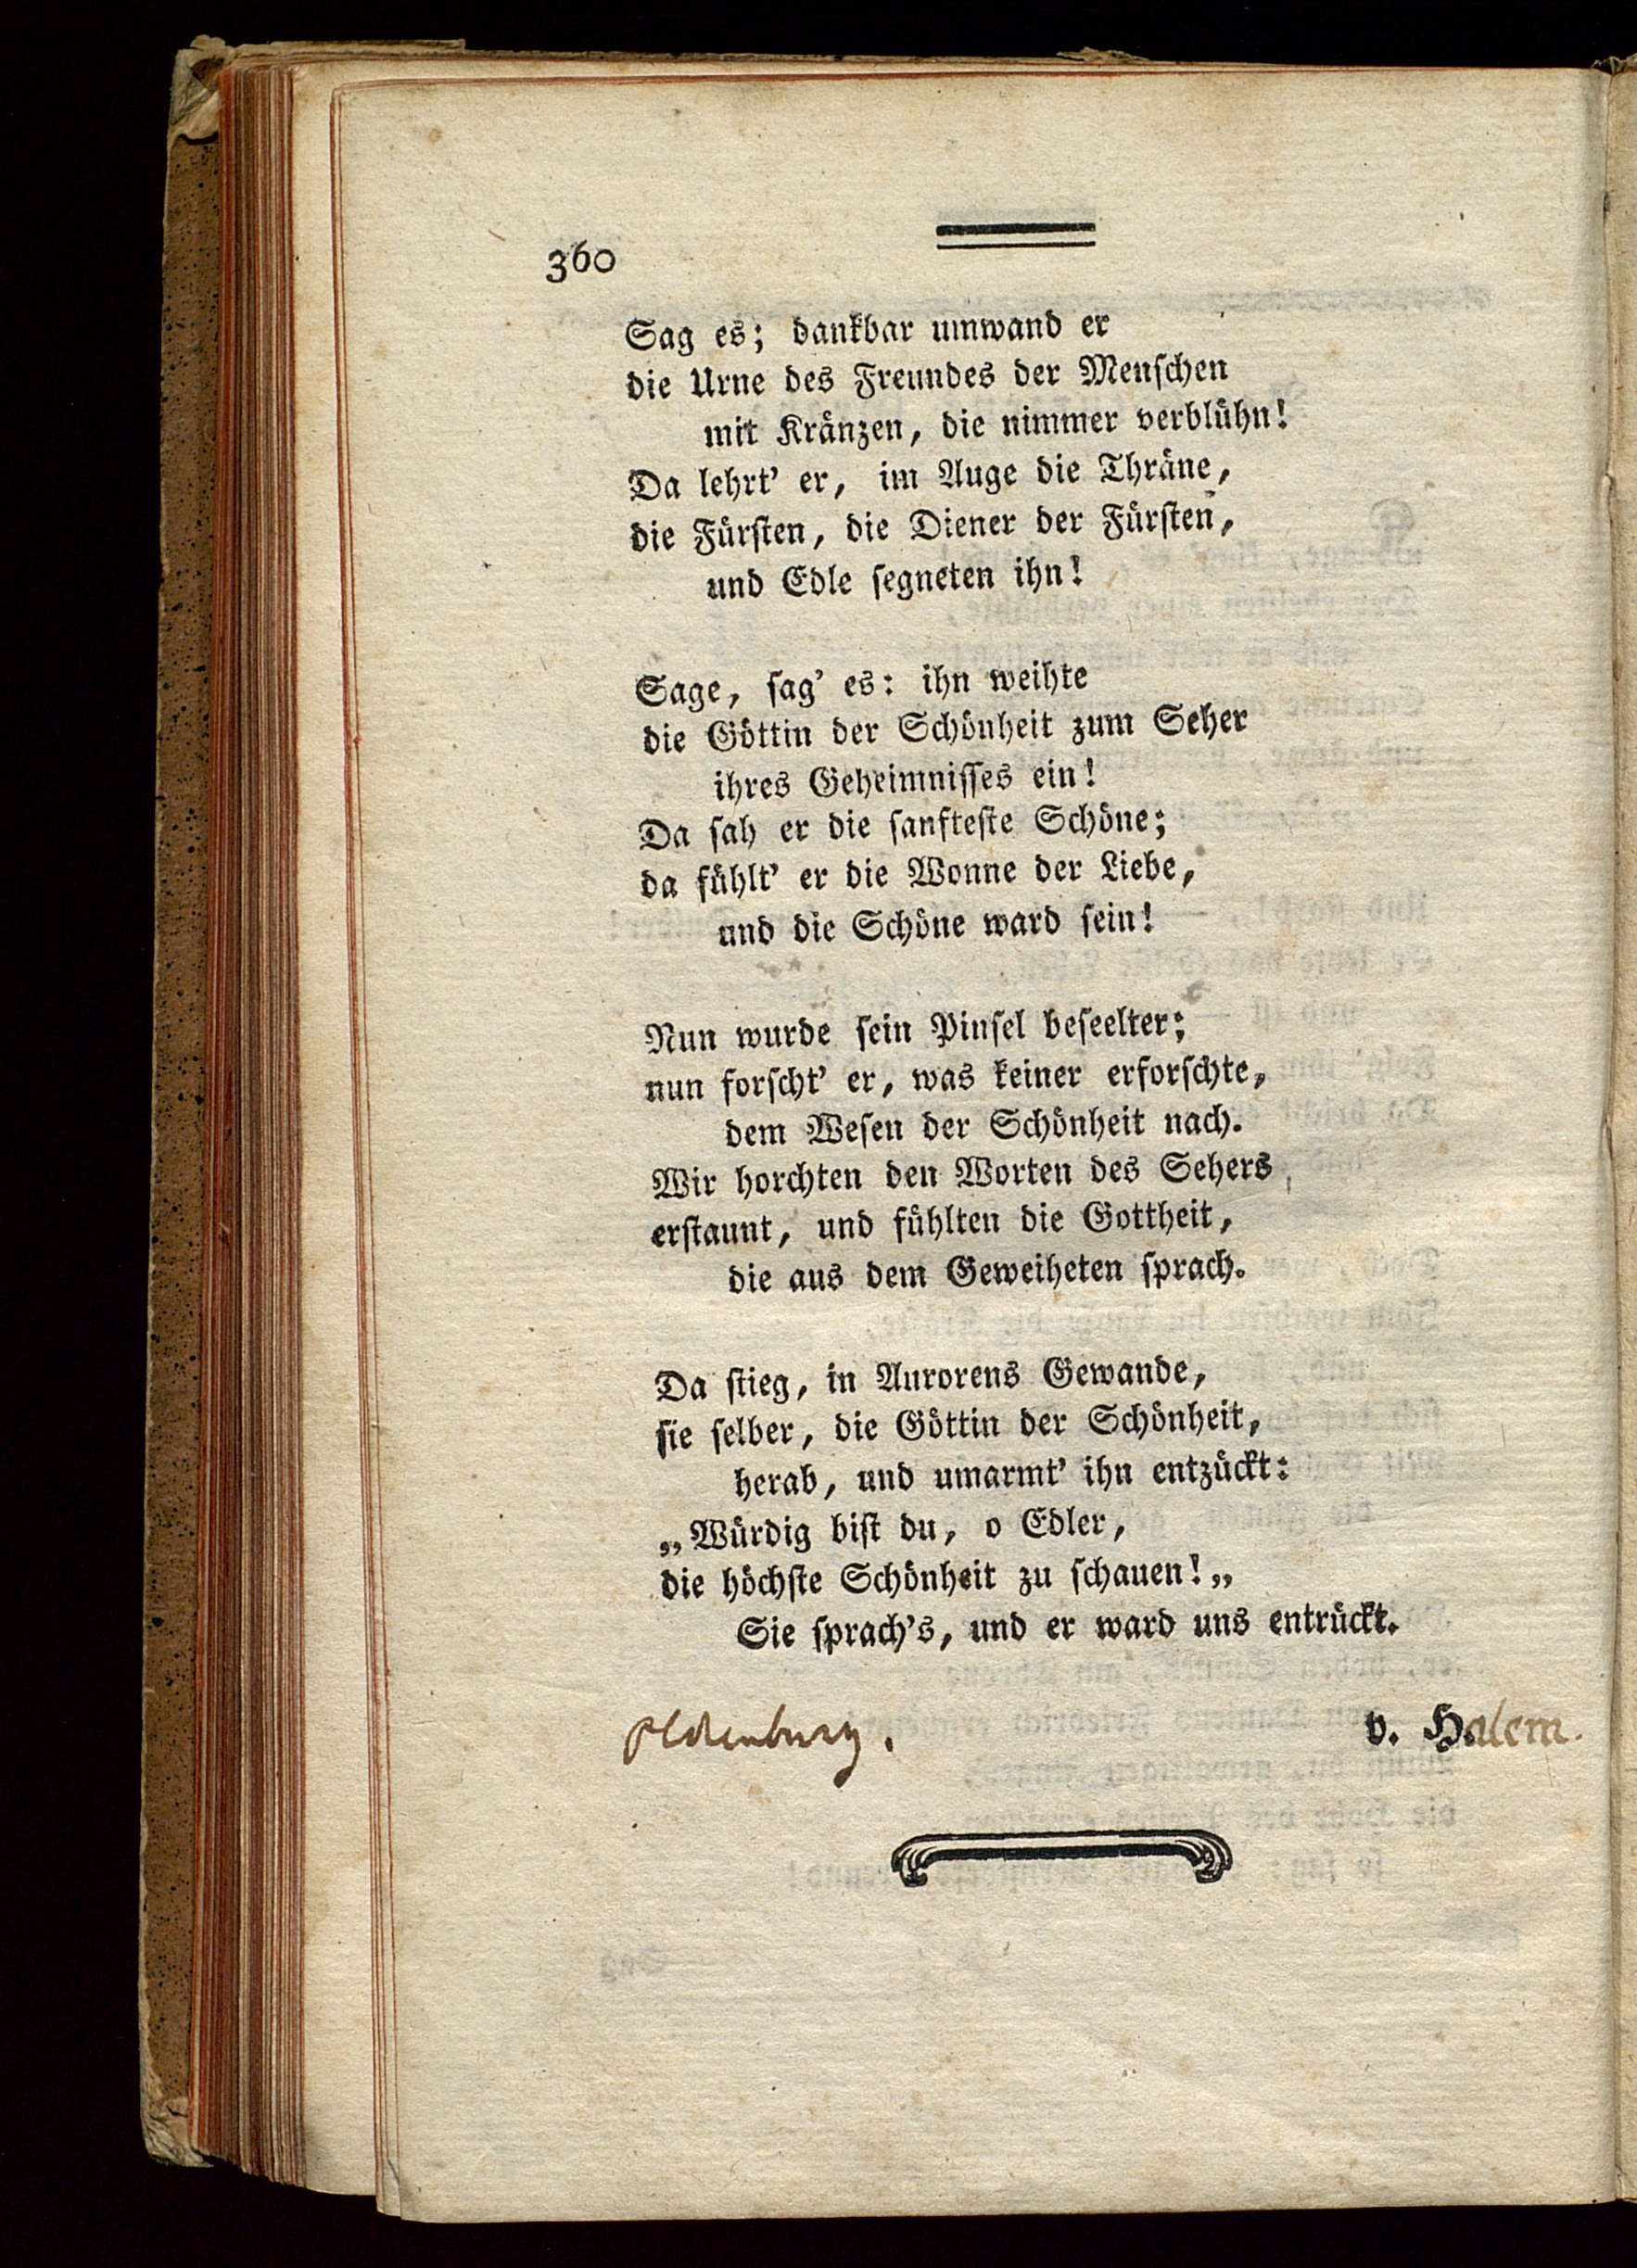 360
Sag es; dankbar umwand er
die Urne des Freundes der Menschen
mit Kränzen, die nimmer verblühn!
Da lehrt' er, im Auge die Thräne,
die Fürsten, die Diener der Fürsten,
und Edle segneten ihn!
Sage, sag' es: ihn weihte
die Göttin der Schönheit zum Seher
ihres Geheimnisses ein!
Da sah er die sanfteste Schöne;
da fühlt' er die Wonne der Liebe,
und die Schöne ward sein!
Nun wurde sein Pinsel beseelter;
nun forscht' er, was keiner erforschte,
dem Wesen der Schönheit nach.
Wir horchten den Worten des Sehers,
erstaunt, und fühlten die Gottheit,
die aus dem Geweiheten sprach.
Da stieg, in Aurorens Gewande,
sie selber, die Göttin der Schönheit,
herab, und umarmt' ihn entzückt:
„Würdig bist du, o Edler,
die höchste Schönheit zu schauen!„
Sie sprach's, und er ward uns entrückt.
Oldenburg. v. Halem.